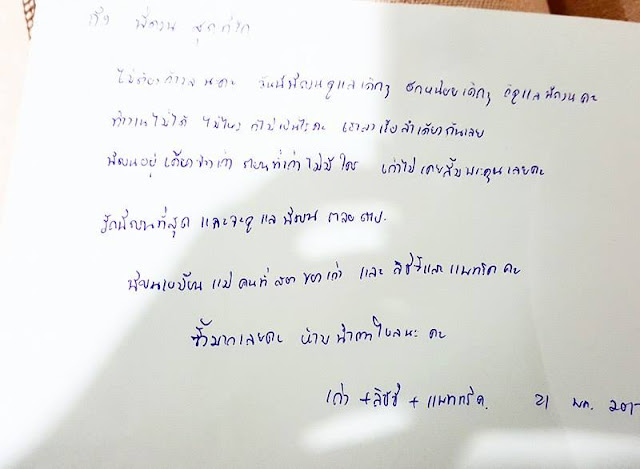 ถึง พี่ณวน สุดที่รัก
ไม่ต้องกังวลนะคะ วันนี้พี่ณวนดูแลเด็กๆ อีกหน่อยเด็กๆ จะดูแลพี่ณวนคะ
ทำงานไม่ได้ ไม่ไหว ก็ไม่เป็นไรคะ เราลงเรือลำเดียวกันเลย
พี่ณวนอยู่เคียงข้างเก๋า ตอนที่เก๋าไม่มีใคร เก๋าไม่เคยลืมพระคุณเลยคะ
รักพี่ณวนที่สุด และจะดูแลพี่ณวนตลอดไป.
พี่ณวนเปรียบเหมือนแม่คนที่สองของเก๋า และ ลิซซี่และแพทริคคะ
ซึ้งมากเลยคะ น้ำตาไหลนะคะ
เก๋า + ลิซซี่ + แพททริค. 21 พค. 201